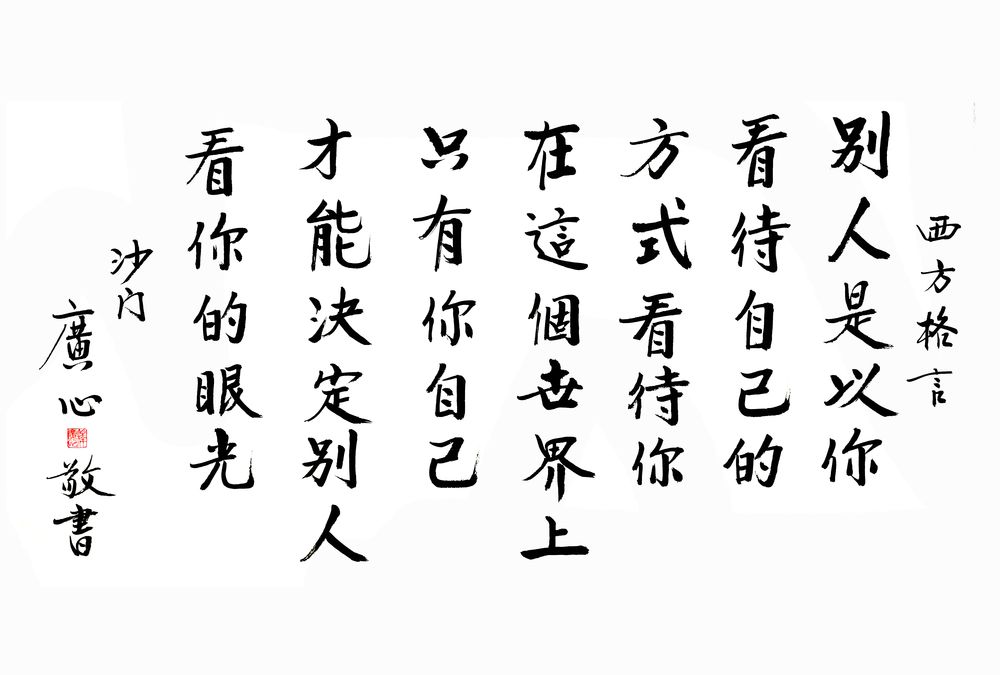 西方格言
別人是以你
看待自己的
方式看待你
在這個世界上
只有你自己
才能決定別人
看你的眼光
沙门
廣心
敬書